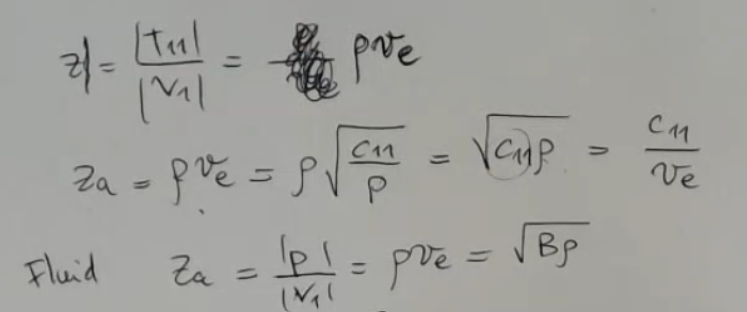 z| = |T₁₁| / |v₁| = ρve
za = ρve = ρ√(c₁₁/ρ) = √(c₁₁ρ) = c₁₁/ve
Fluid za = |p| / |v₁| = ρve = √(Bρ)